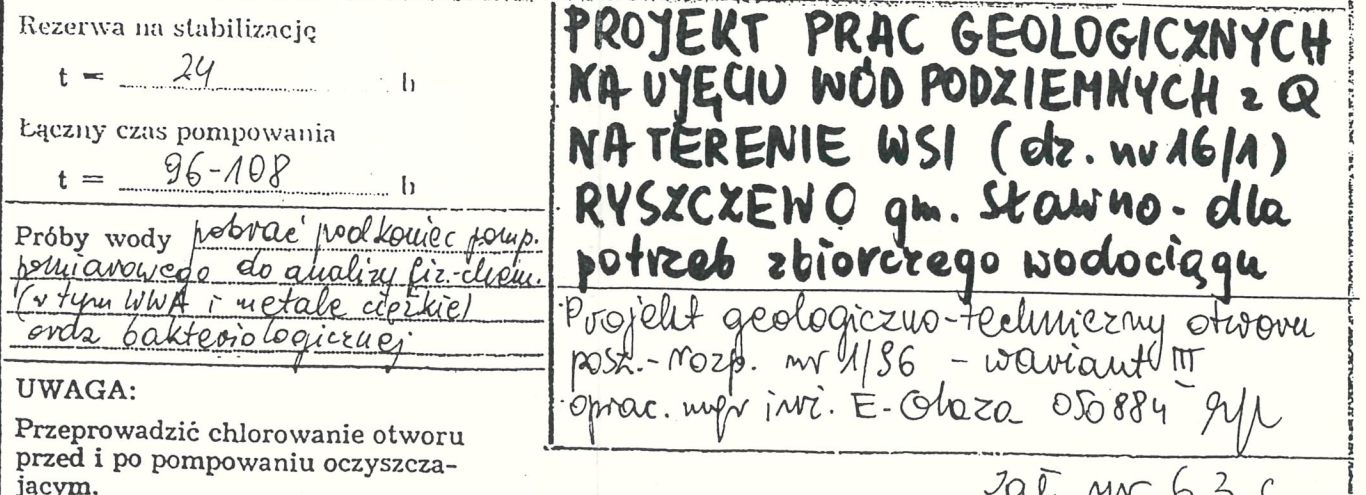 Rezerwa na stabilizację
t = 24 h
Łączny czas pompowania
t = 96-108 h
Próby wody pobrać pod koniec pomp.
pomiarowego do analizy fiz.-chem.
(w tym WWA i metale ciężkie)
oraz bakteriologicznej
UWAGA:
Przeprowadzić chlorowanie otworu
przed i po pompowaniu oczyszcza-
jącym.
PROJEKT PRAC GEOLOGICZNYCH
NA UJĘCIU WÓD PODZIEMNYCH z Q
NA TERENIE WSI (dz. nr 16/1)
RYSZCZEWO gm. Sławno - dla
potrzeb zbiorczego wodociągu
Projekt geologiczno-techniczny otworu
posz.-rozp. nr 1/96 - wariant III
oprac. mgr inż. E. 050884
zał. nr 6.3.c